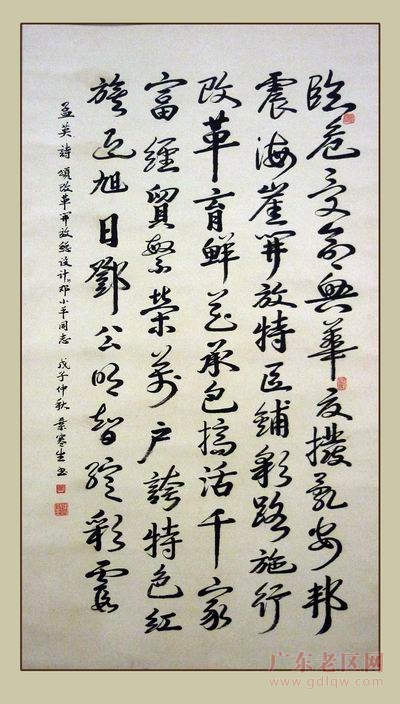 臨危受命興華夏撥亂安邦
震海崖開放特區鋪彩路施行
改革育鮮花承包搞活千家
富經貿繁榮萬戶誇特色紅
旗迎旭日鄧公明智綻彩霞
孟英詩 頌改革開放總设计师邓小平同志 戊子仲秋 葉寒生书
广东老区网
www.gdlqw.com